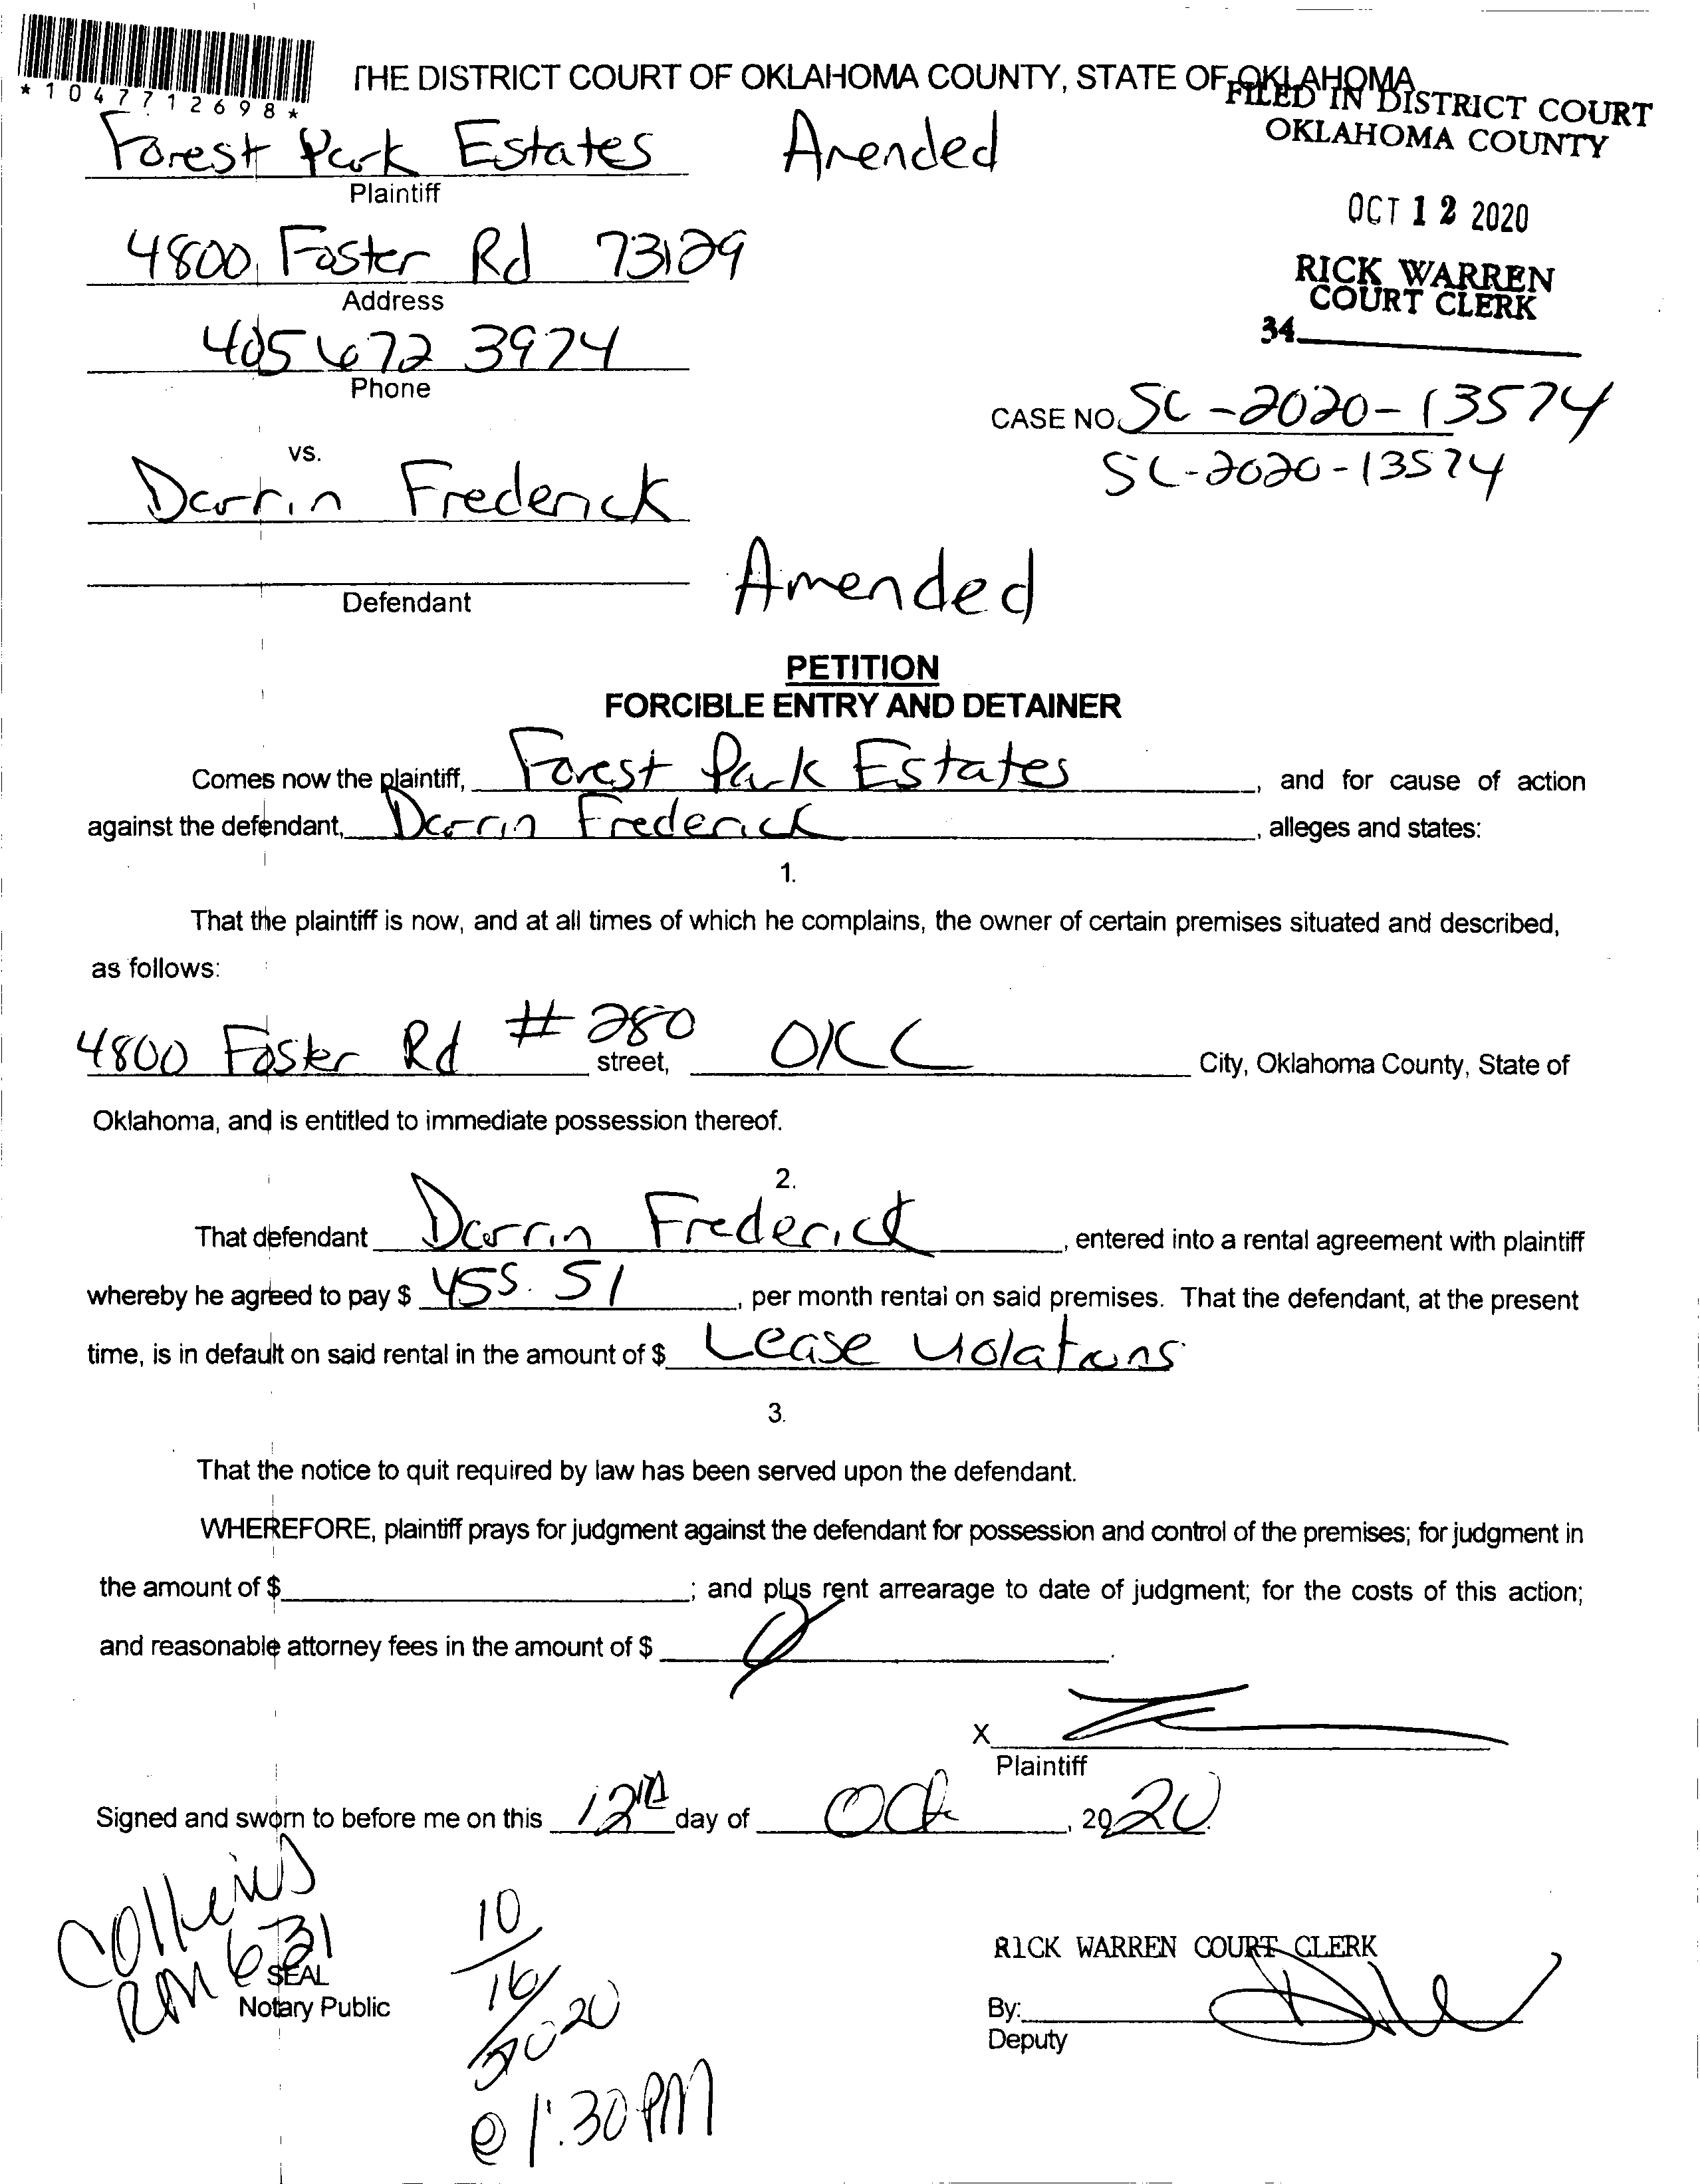 *1047712698*
THE DISTRICT COURT OF OKLAHOMA COUNTY, STATE OF OKLAHOMA
FILED IN DISTRICT COURT
OKLAHOMA COUNTY
Forest Park Estates Amended
Plaintiff
OCT 12 2020
4800 Foster Rd 73129
Address
RICK WARREN
COURT CLERK
34
405 672 3974
Phone
CASE NO. SC-2020-13574
SC-2020-13574
vs.
Darrin Frederick
Amended
Defendant
PETITION
FORCIBLE ENTRY AND DETAINER
Comes now the plaintiff, Forest Park Estates, and for cause of action
against the defendant, Darrin Frederick, alleges and states:
1.
That the plaintiff is now, and at all times of which he complains, the owner of certain premises situated and described,
as follows:
4800 Foster Rd #280 street, OKC City, Oklahoma County, State of
Oklahoma, and is entitled to immediate possession thereof.
2.
That defendant Darrin Frederick, entered into a rental agreement with plaintiff
whereby he agreed to pay $ 455.51, per month rental on said premises. That the defendant, at the present
time, is in default on said rental in the amount of $ Lease violations
3.
That the notice to quit required by law has been served upon the defendant.
WHEREFORE, plaintiff prays for judgment against the defendant for possession and control of the premises; for judgment in
the amount of $ ; and plus rent arrearage to date of judgment; for the costs of this action;
and reasonable attorney fees in the amount of $ .
X
Plaintiff
Signed and sworn to before me on this 12th day of Oct, 2020
Collins
RM 631
SEAL
Notary Public
10
16
2020
@ 1:30 PM
RICK WARREN COURT CLERK
By:
Deputy